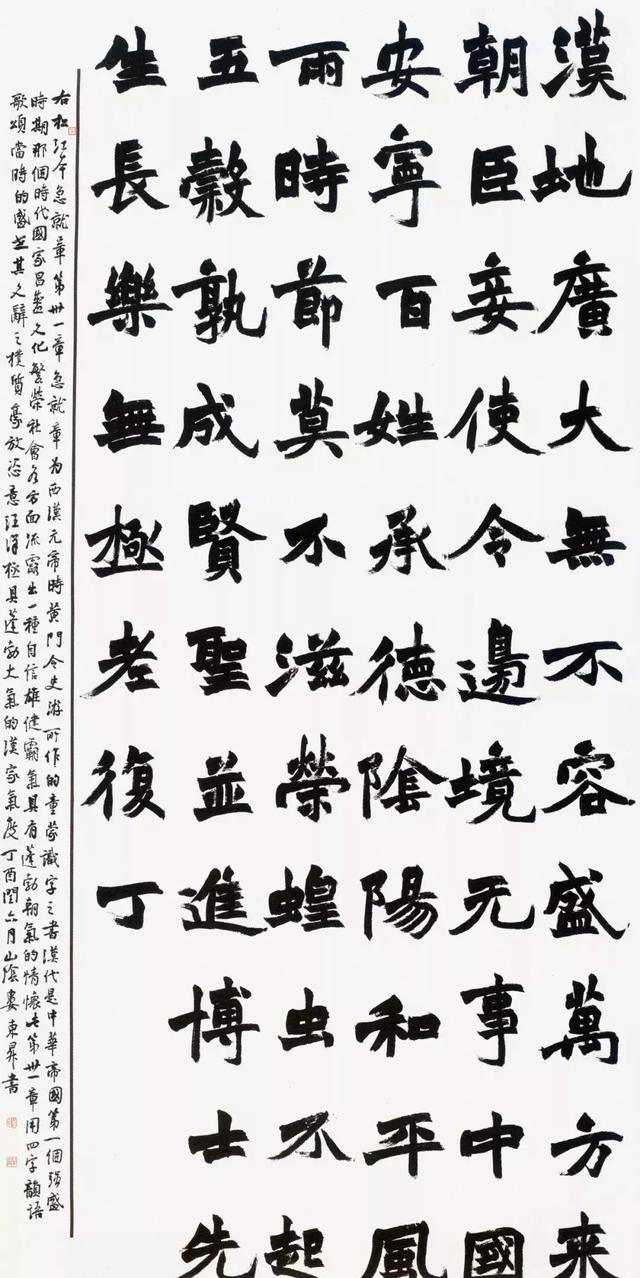 漢地廣大無不容盛萬方来
朝臣妾使令邊境无事中國
安寧百姓承德陰陽和平風
雨時節莫不滋榮蝗虫不起
五穀孰成賢聖並進博士先
生長樂無極老復丁
右松江本急就章第卅一章急就章为西漢元帝時黄門令史游所作的童蒙識字之書漢代是中華帝國第一個强盛
時期那個時代國家昌盛文化繁榮社會各方面流露出一種自信雄健霸氣具有蓬勃朝氣的情懷此第卅一章用四字韻語
歌頌當時的盛世其文辭之樸質豪放恣意汪洋極具蓬勃大氣的漢家氣度丁酉閏六月山陰婁東昇書